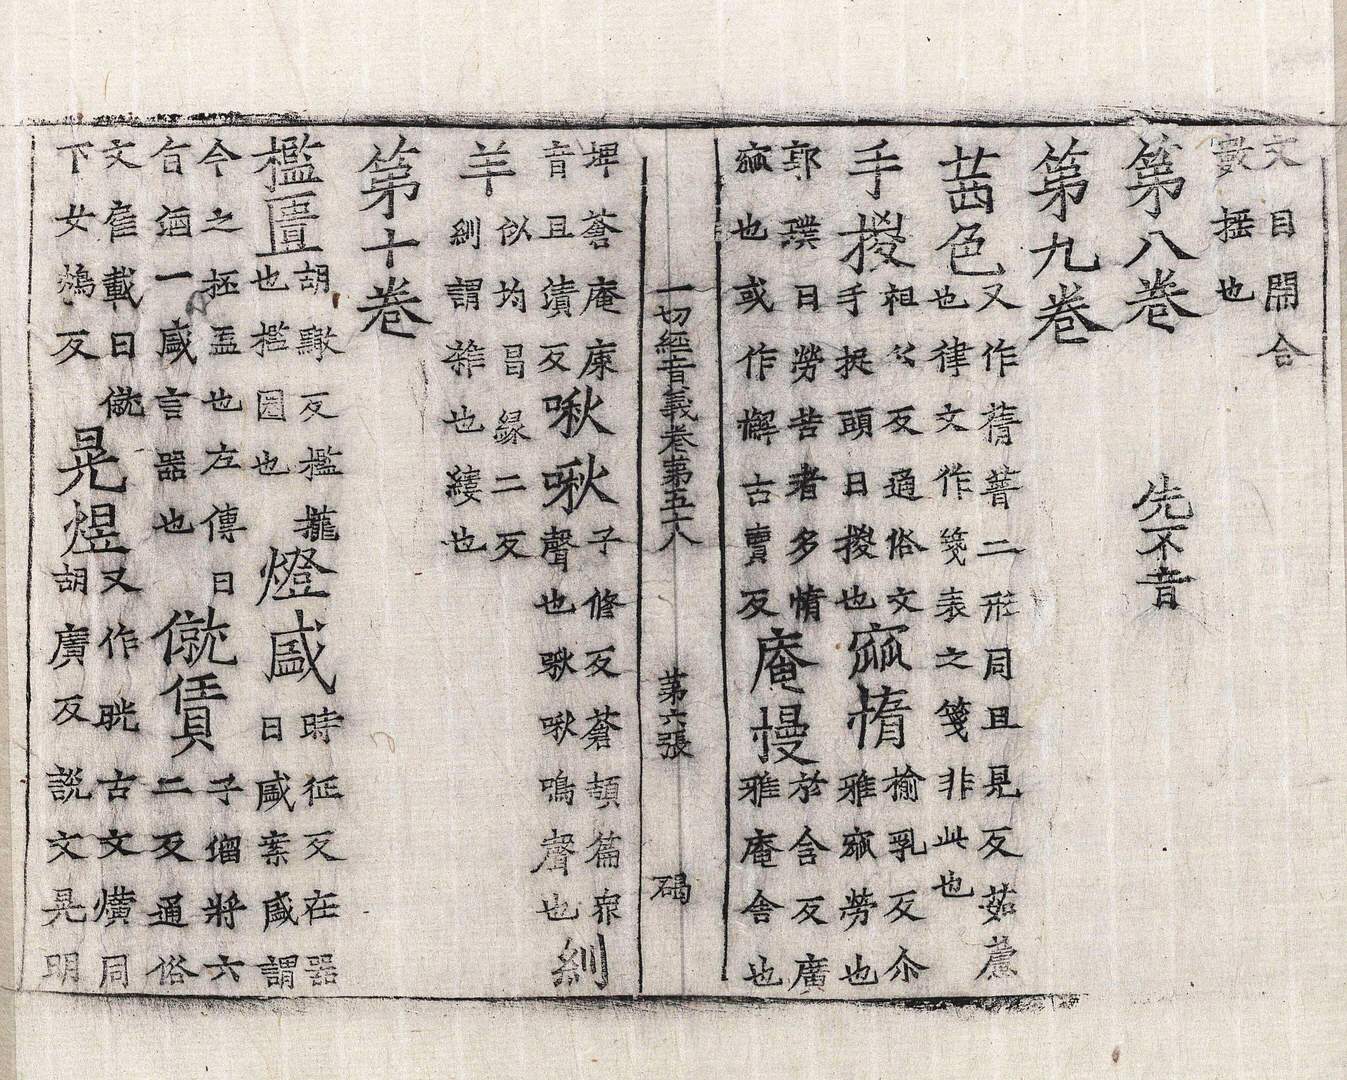 文目開合
數搖也
第八卷 先不音
第九卷
茜色 又作蒨蒨二形同且見反茹藘
也律文作箋表之箋非此也
手㨑 祖公反通俗文
手捉頭曰㨑也 寙惰 榆乳反尒
雅寙勞也
郭璞曰勞苦者多惰
寙也或作懈古賣反 庵慢 於含反廣
雅庵舍也
一切經音義卷第五十八 第六張 碣
埤蒼庵廗
音且漬反 啾啾 子修反蒼頡篇衆
聲也啾啾鳴聲也 紃
羊 似均昌緣二反
紃謂雜也縷也
第十卷
檻匱 胡黤反檻櫳
也檻圈也 燈盛 時征反在器
曰盛案盛謂
今之抷盂也左傳曰
旨酒一盛言器也 僦賃 子溜將六
二反通俗
文雇載曰僦
下女鴆反 晃煜 又作晄古文爌同
胡廣反說文晃明